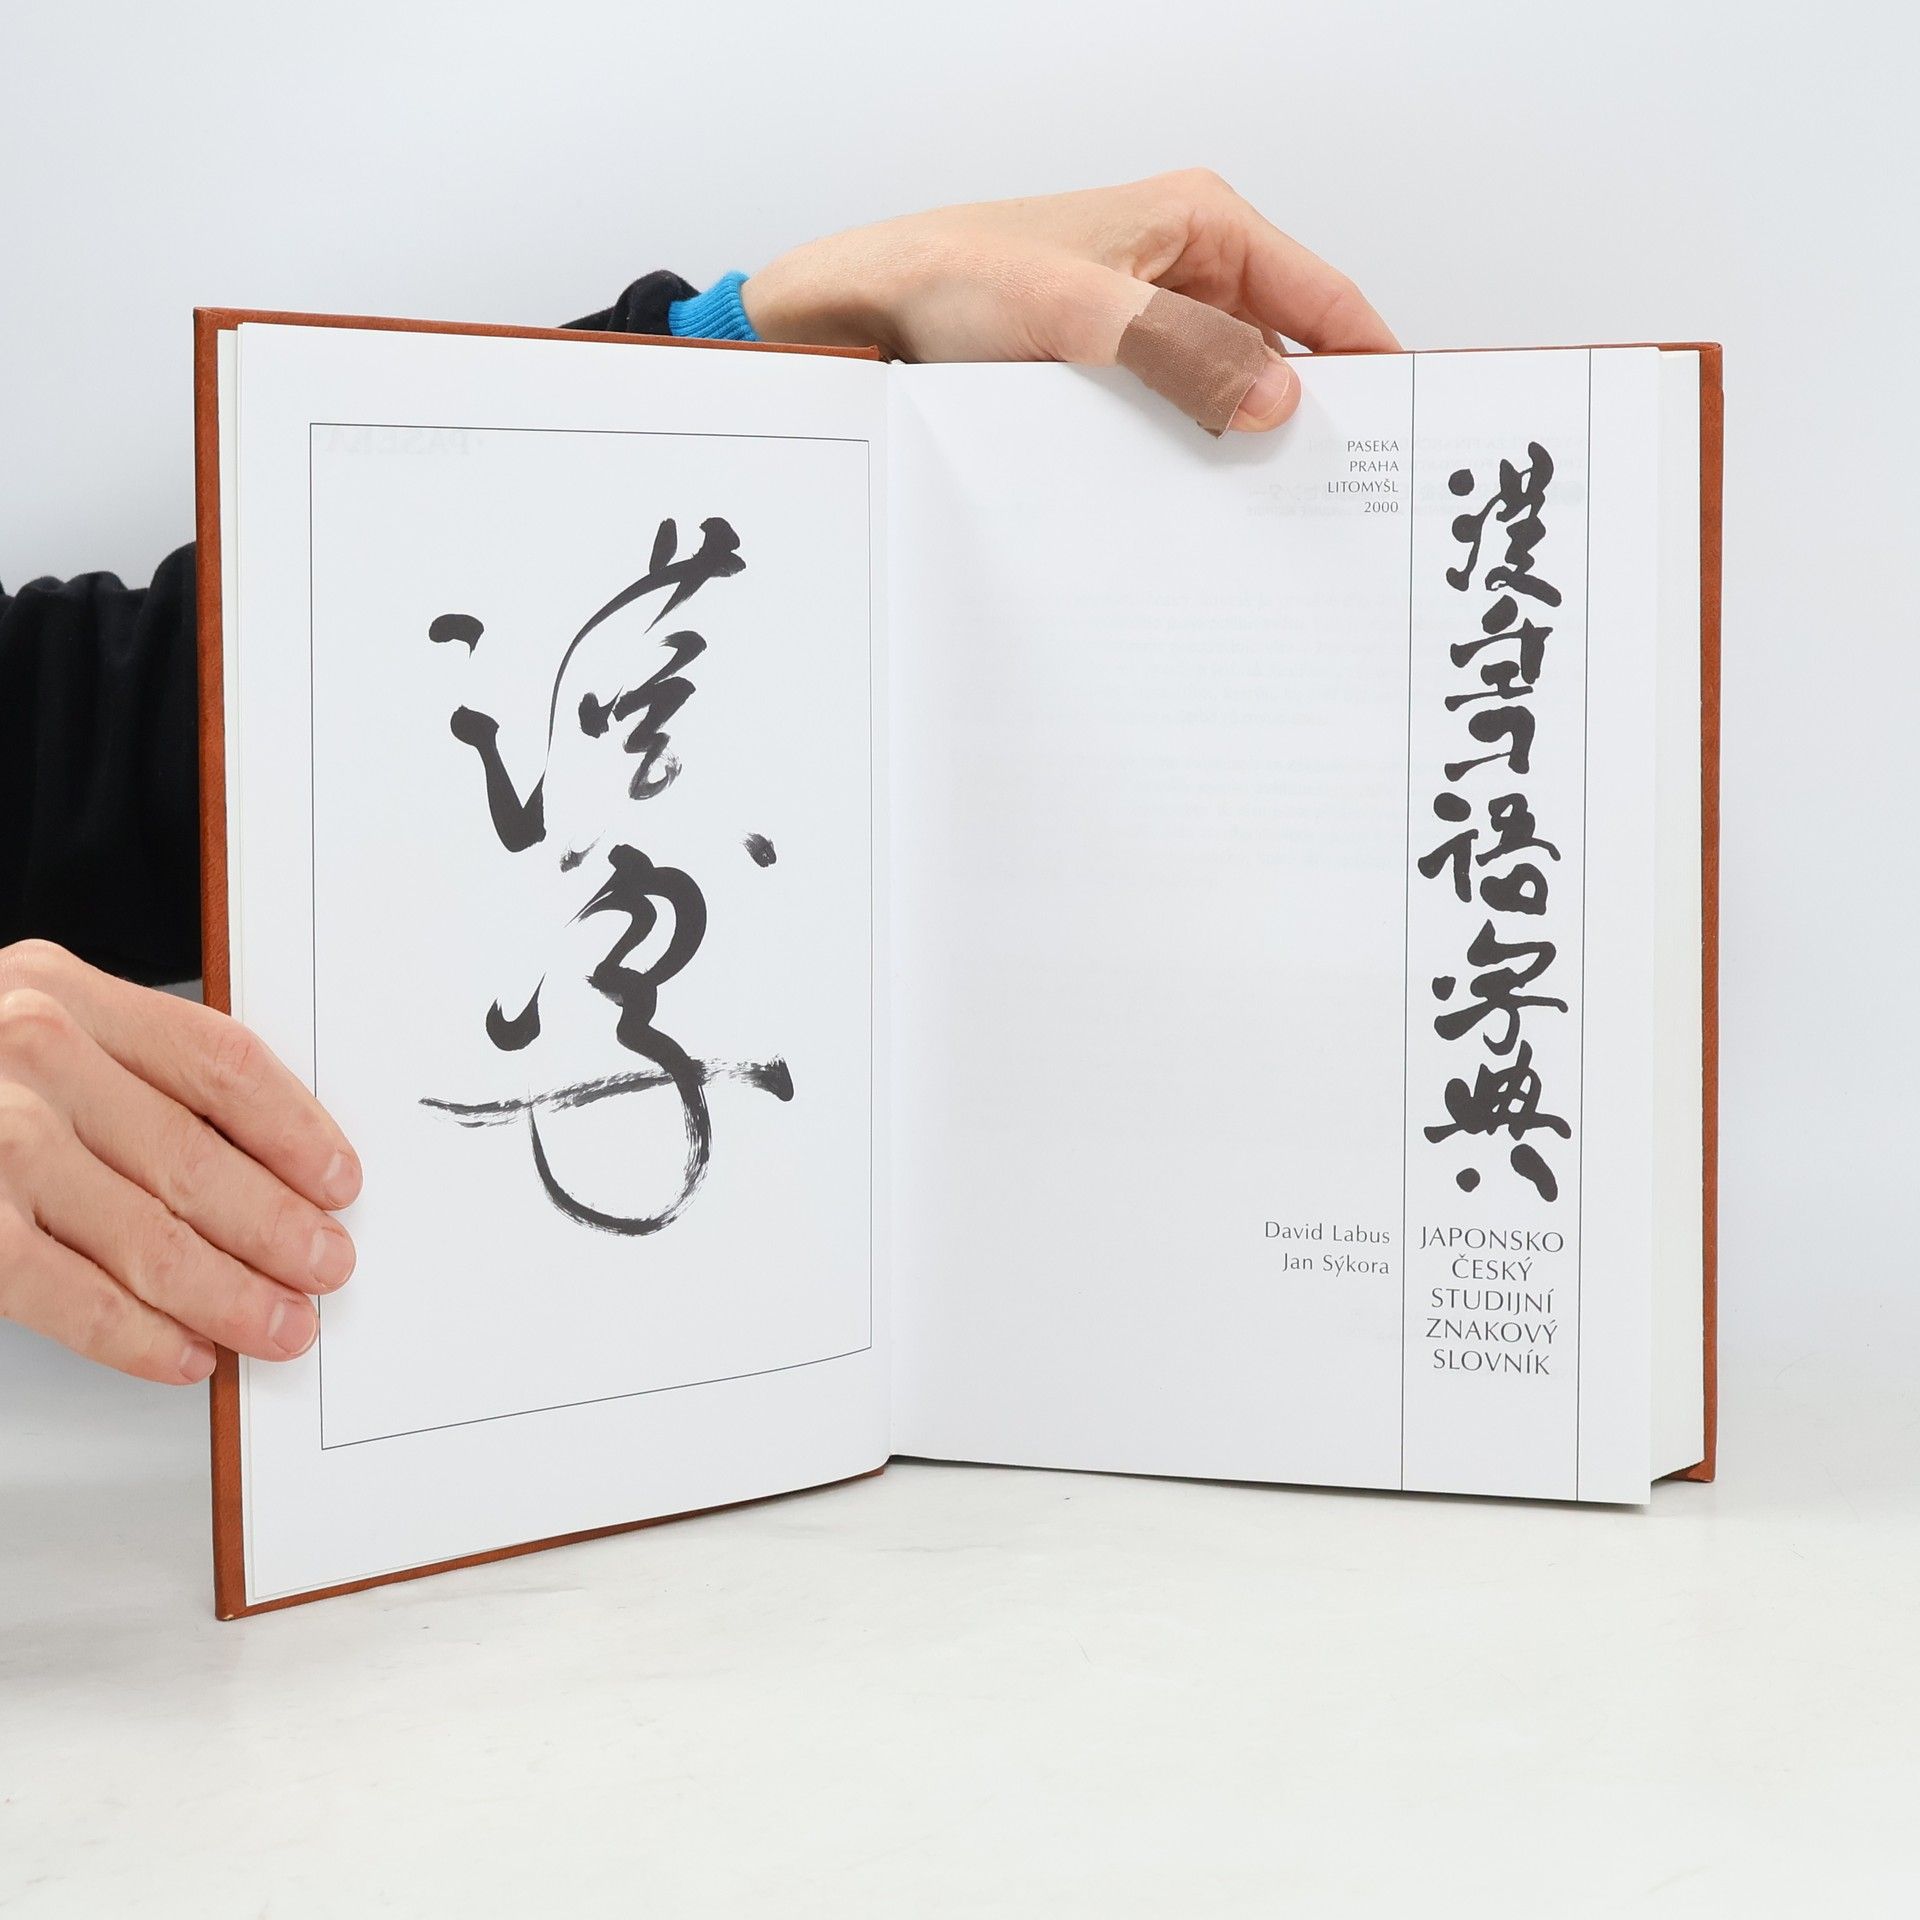 漢字
PASEKA
PRAHA
LITOMYŠL
2000
漢チェコ語字典
David Labus
Jan Sýkora
JAPONSKO
ČESKÝ
STUDIJNÍ
ZNAKOVÝ
SLOVNÍK